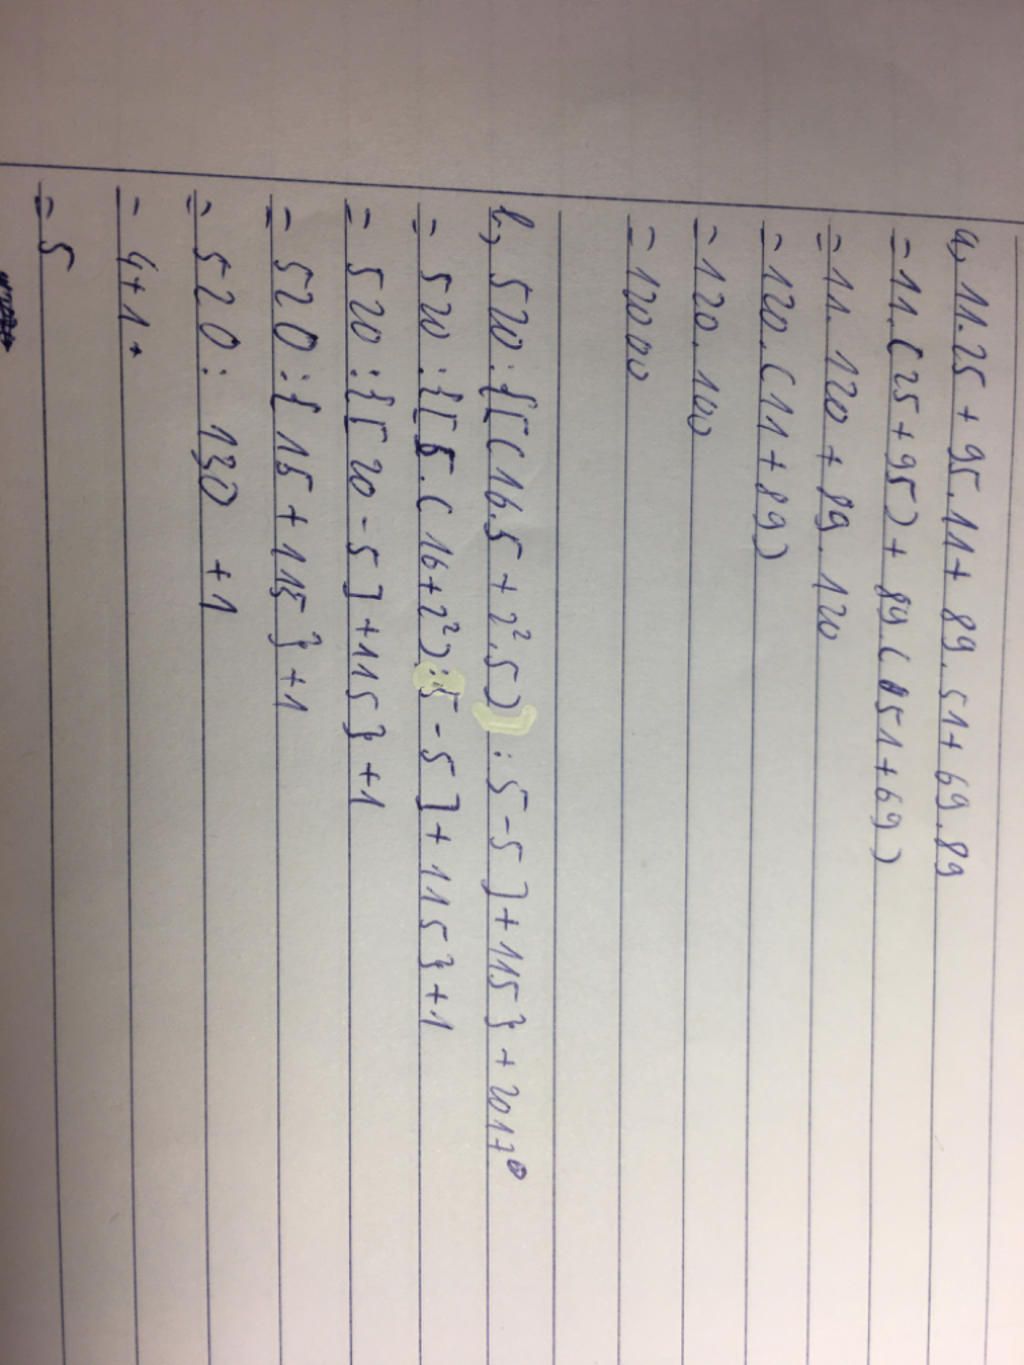 a, 11.25 + 95.11 + 89.51 + 69.89
= 11.(25+95) + 89.(51+69)
= 11.120 + 89.120
= 120.(11+89)
= 120.100
= 12000
b, 520:{[(16.5 + 2².5):5-5]+115}+2017⁰
= 520:{[5.(16+2²):5-5]+115}+1
= 520:{[20-5]+115}+1
= 520:{15+115}+1
= 520:130 +1
= 4+1.
= 5